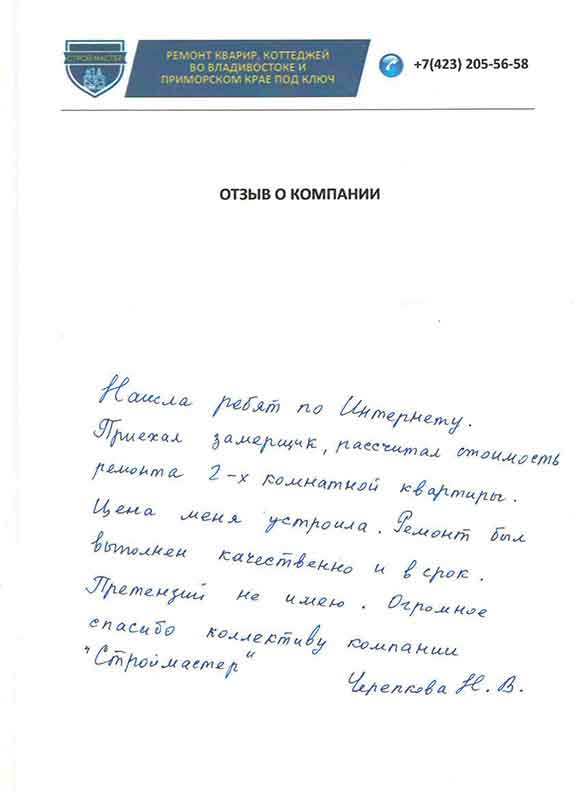 СТРОЙ МАСТЕР
РЕМОНТ КВАРИР, КОТТЕДЖЕЙ
ВО ВЛАДИВОСТОКЕ И
ПРИМОРСКОМ КРАЕ ПОД КЛЮЧ
+7(423) 205-56-58
ОТЗЫВ О КОМПАНИИ
Нашла ребят по Интернету.
Приехал замерщик, рассчитал стоимость
ремонта 2-х комнатной квартиры.
Цена меня устроила. Ремонт был
выполнен качественно и в срок.
Претензий не имею. Огромное
спасибо коллективу компании
"Строймастер"
Черепкова Н. В.